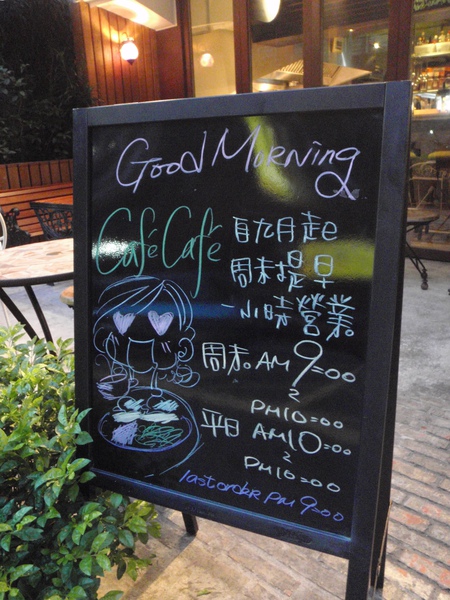 Good Morning
Café Café
自九月起
周末提早
一小時營業
周末 AM 9:00
~
PM10:00
平日 AM10:00
~
PM10:00
last order PM 9:00